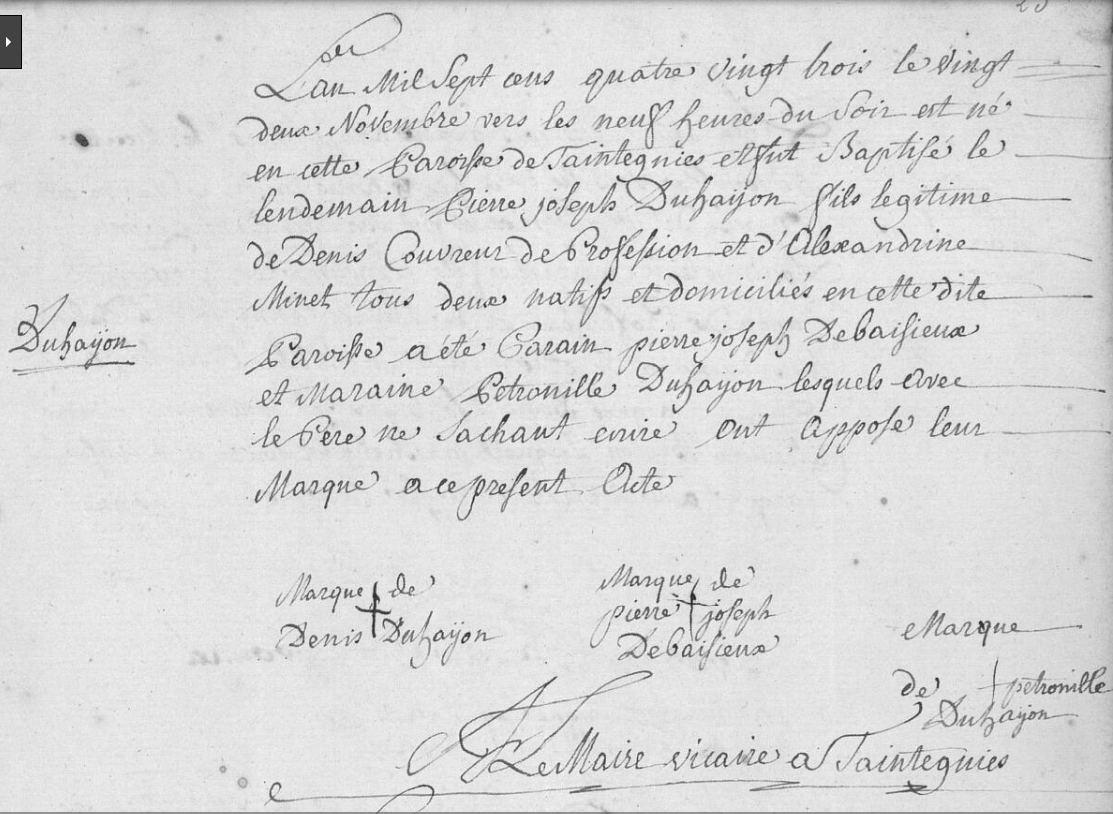 L'an Mil Sept cens quatre vingt trois le vingt
deux Novembre vers les neuf heures du Soir est né
en cette Paroisse de Taintegnies et fut Baptisé le
lendemain Pierre joseph Duhayon fils legitime
de Denis Couvreur de Profession et d'Alexandrine
Minet tous deux natifs et domiciliés en cette dite
Duhayon
Paroisse a été Parain pierre joseph Debaisieux
et Maraine Petronille Duhayon lesquels avec
le Pere ne Sachant ecrire ont apposé leur
Marque a ce present Acte
Marque de
Denis Duhayon
Marque de
pierre joseph
Debaisieux
Marque
de petronille
Duhayon
LeMaire vicaire a Taintegnies